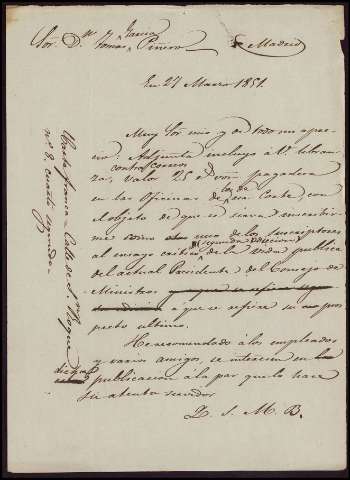 Sor. D.n Tomas García y Piñero
Madrid
En 27 Marzo 1851.
Muy Sor mio y de todo mi apre-
cio: Adjunta incluyo á V. libran-
za contra correos, valor 25 rvn pagadera
en las oficinas de esa Corte, con
objeto de que se sirva inscribir-
me como uno de los suscriptores
al ensayo critico (segunda edicion) de la vida publica
del actual Presidente del Consejo de
Ministros
á que se refiere su pros-
pecto ultimo.
He recomendado á los empleados
y varios amigos, se interesen en
dicha publicacion á la par que lo hace
su atento servidor
Q. S. M. B.
Carta franca - Calle de S.n Roque
nº 8, cuarto segundo -